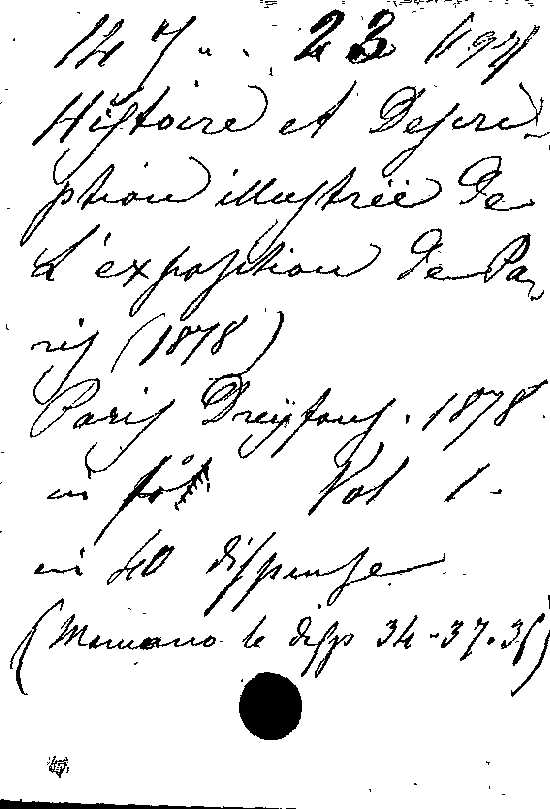 147 . . 23
Histoire et Descri-
ption illustrée de
L'exposition de Pa-
ris (1878)
Paris Dreyfous. 1878
in fol Vol 1.
in 40 dispense
(Mancano le disp 34-37.